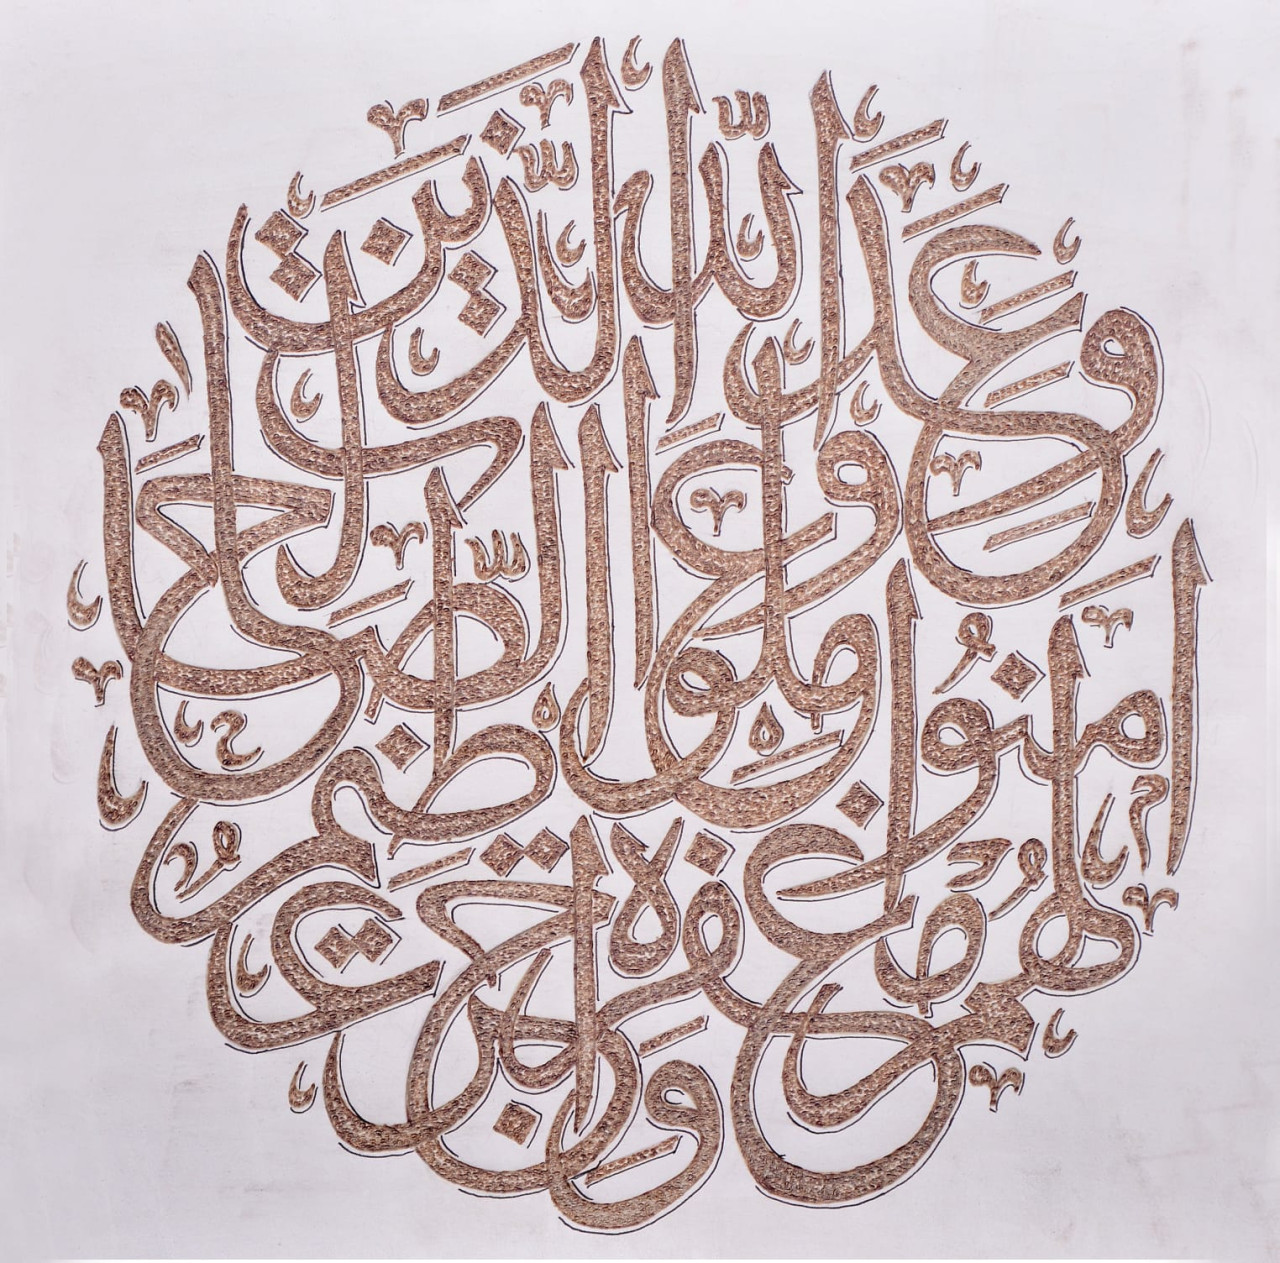 وَعَدَ اللّٰهُ الَّذِينَ
اٰمَنُوا وَعَمِلُوا الصّٰلِحٰتِ
لَهُمْ مَغْفِرَةٌ وَاَجْرٌ عَظِيمٌ